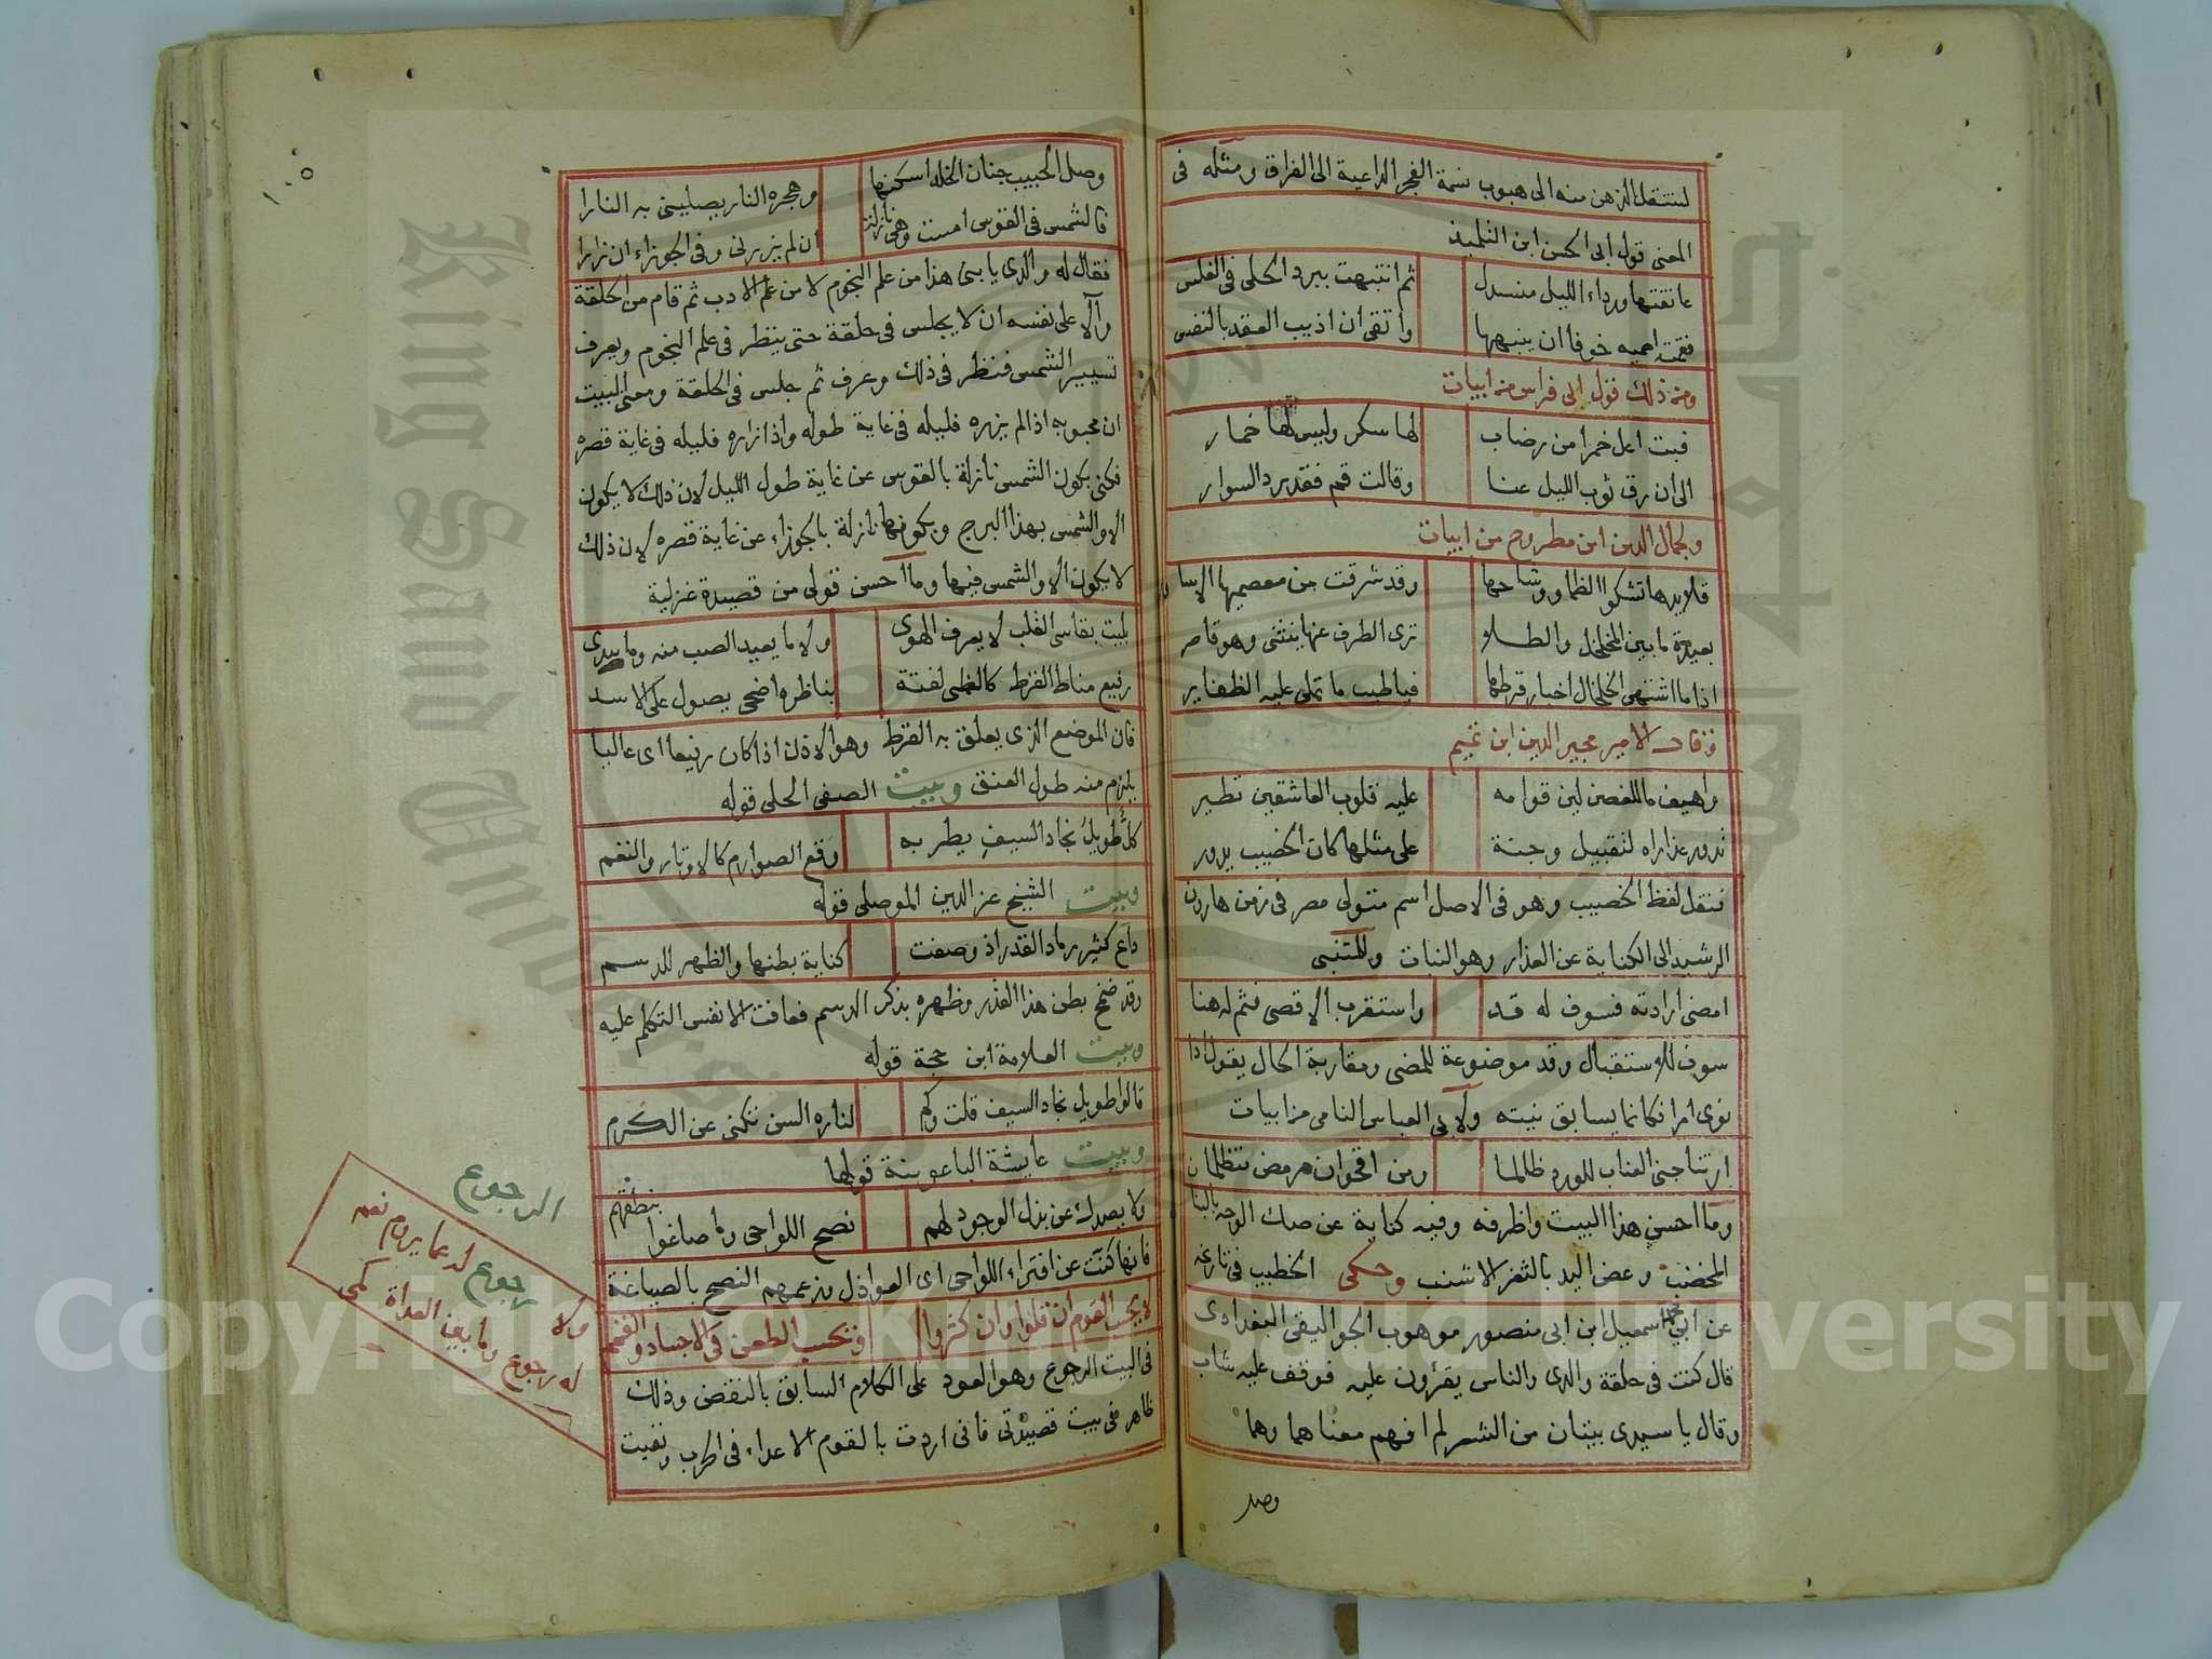 لينتقل الذهن منه الى هبوب نسمة الفجر الداعية الى الفراق ومثله فى
المعنى قول ابى الحسن ابن التلميذ
عانقتها ورداء الليل منسدل ثم انتبهت ببرد الحلى فى الغلس
فقمت احميه خوفا ان ينبهها واتقى ان اذيب العقد بالنفس
ومن ذلك قول ابى فراس من ابيات
فبت اعل خمرا من رضاب لها سكر وليس لها خمار
الى ان رق ثوب الليل عنا وقالت قم فقد برد السوار
ولجمال الدين ابن مطروح من ابيات
قلايدها تشكوا الظما ووشاحها وقد شرقت من معصميها الاساور
بعيدة ما بين المخلخل والطلا ترى الطرف عنها ينثنى وهو قاصر
اذا ما اشتهى الخلخال اخبار قرطها فياطيب ما تملى عليه الظفاير
وقال الامير مجير الدين ابن تميم
واهيف ما للغصن لين قوامه عليه قلوب العاشقين تطير
تدور عذاراه لتقبيل وجنة على مثلها كان الخصيب يدور
فنقل لفظ الخصيب وهو فى الاصل اسم متولى مصر فى زمن هارون
الرشيد الى الكناية عن العذار وهو النبات وللمتنبى
امضى ارادته فسوف له قد واستقرب الاقصى فثم له هنا
سوف للاستقبال وقد موضوعة للمضى ومقاربة الحال يقول اذا
نوى امرا فكانما يسابق نيته ولابى العباس النامى من ابيات
ارتنا جنى العناب للورد ظالما ومن اقحوان مرمض متظلمان
وما احسن هذا البيت واظرفه وفيه كناية عن صك الوجه بالبنا
المخضب وعض اليد بالثغر الاشنب وحكى الخطيب فى تاريخه
عن ابى محمد اسمعيل ابن ابى منصور موهوب الجواليقى البغدادى
قال كنت فى حلقة والدى والناس يقرؤن عليه فوقف عليه شاب
وقال يا سيدى بيتان من الشعر لم افهم معناهما وهما
وصل
١٠٥
وصل الحبيب جنان الخلد اسكنها وهجره النار يصلينى به النارا
فالشمس فى القوس امست وهى نازلة ان لم يزرنى وفى الجوزاء ان زارا
فقال له والدى يا بنى هذا من علم النجوم لا من علم الادب ثم قام من الحلقة
وآلا على نفسه ان لا يجلس فى حلقة حتى ينظر فى علم النجوم ويعرف
تسيير الشمس فنظر فى ذلك وعرف ثم جلس فى الحلقة ومعنى البيت
ان محبوبه اذا لم يزره فليله فى غاية طوله واذا زاره فليله فى غاية قصره
فكنى بكون الشمس نازلة بالقوس عن غاية طول الليل لان ذلك لا يكون
الا والشمس بهذا البرج وبكونها نازلة بالجوزاء عن غاية قصره لان ذلك
لا يكون الا والشمس فيها وما احسن قولى من قصيدة غزلية
بليت بقاسى القلب لا يعرف الهوى ولا ما يعيد الصب منه وما يبدى
رفيع مناط القرط كالظبى لفتة بناظره اضحى يصول على الاسد
فان الموضع الذى يعلق به القرط وهو الاذن اذا كان رفيعا اى عاليا
يلزم منه طول العنق وبيت الصفى الحلى قوله
كل طويل نجاد السيف يطربه وقع الصوارم كالاوتار والنغم
وبيت الشيخ عز الدين الموصلى قوله
داع كثير رماد القدر اذ وصفت كناية بطنها والظهر للدسم
وقد ضمخ بطن هذا القدر وظهره بذكر الدسم فعافت الانفس التكلم عليه
وبيت العلامة ابن حجة قوله
قالوا طويل نجاد السيف قلت وكم لناره السن تكنى عن الكرم
وبيت عايشة الباعونية قولها
ولا يصدك عن بذل الوجود لهم نصح اللواحى وما صاغوا بنطقهم
فانها كنت عن افتراء اللواحى اى العواذل بزعمهم النصح بالصياغة
لا يحسب القوم ان قلوا وان كثروا ونحسب الطعن فى الاجساد والقمم
فى البيت الرجوع وهو العود على الكلام السابق بالنقض وذلك
ظاهر فى بيت قصيدتى فانى اردت بالقوم الاعداء فى الحرب ونفيت
الرجوع
ولا رجوع لدعما يروم نعم
له رجوع وما بين العداة كمى
Copyright © King Saud University